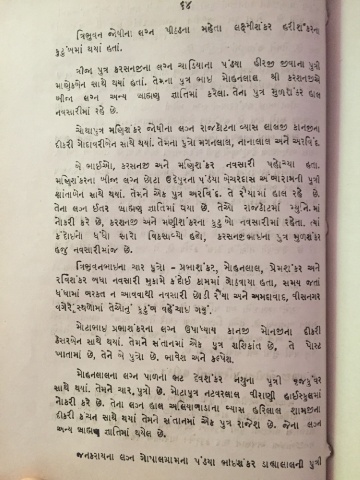 ૬૪
ત્રિભુવન જોષીના લગ્ન પીઠડના મહેતા લક્ષ્મીશંકર હરીશંકરના
કુટુંબમાં થયાં હતાં.
ત્રીજા પુત્ર કરસનજીના લગ્ન ચાડિયાના પંડયા હીરજી જીવાના પુત્રી
માણેકબેન સાથે થયાં હતાં. તેમના પુત્ર ભાઈ મોહનલાલ. શ્રી કરસનજીએ
બીજા લગ્ન અન્ય બ્રાહ્મણ જ્ઞાતિમાં કરેલા. તેના પુત્ર મુળશંકર હાલ
નવસારીમાં રહે છે.
ચોથાપુત્ર મણિશંકર જોષીના લગ્ન રાજકોટના વ્યાસ લાલજી કાનજીના
દીકરી ગોદાવરીબેન સાથે થયાં. તેમના પુત્રો મગનલાલ, નાનાલાલ અને અરવિંદ.
બે ભાઈઓ, કરસનજી અને મણિશંકર નવસારી પહોંચ્યા હતા.
મણિશંકરના બીજા લગ્ન છોટા ઉદેપુરના પંડયા બેચરદાસ આત્મારામની પુત્રી
શાંતાબેન સાથે થયાં. તેમને એક પુત્ર અરવિંદ. તે રૈયામાં હાલ રહે છે.
તેના લગ્ન ઈતર બ્રાહ્મણ જ્ઞાતિમાં થયા છે. તેઓ રાજકોટમાં મ્યુનિ.માં
નોકરી કરે છે. કરસનજી અને મણીશંકરના કુટુંબો નવસારીમાં રહેતા. ત્યાં
કંદોઈનો ધંધો સારો વિકસાવ્યો હતો, કરસનજીભાઈના પુત્ર મુળશંકર
હજુ નવસારીમાંજ છે.
ત્રિભુવનભાઈના ચાર પુત્રો – પ્રભાશંકર, મોહનલાલ, પ્રેમશંકર અને
રવિશંકર બધા નવસારી મુકામે કંદોઈ કામમાં જોડાયા હતા, સમય જતાં
ધંધામાં બરકત ન આવવાથી નવસારી છોડી રૈયા અને અમદાવાદ, વીસનગર
વગેરે સ્થળોમાં તેઓનું કુટુંબ વહેંચાઈ ગયું.
મોટાભાઈ પ્રભાશંકરના લગ્ન ઉપાધ્યાય કાનજી મોનજીના દીકરી
કેસરબેન સાથે થયાં. તેમને સંતાનમાં એક પુત્ર શશિકાંત છે, તે પોસ્ટ
ખાતામાં છે, તેને બે પુત્રો છે. ભાવેશ અને કલ્પેશ.
મોહનલાલના લગ્ન પાળના ભટ દેવશંકર નથુના પુત્રી વ્રજકુંવર
સાથે થયાં. તેમને ચાર પુત્રો છે. મોટાપુત્ર નટવરલાલ વીરાણી હાઈસ્કુલમાં
નોકરી કરે છે. તેના લગ્ન હાલ અલિયાબાડાના વ્યાસ હરિલાલ શામજીના
દીકરી કંચન સાથે થયાં તેમને સંતાનમાં એક પુત્ર રાજેશ છે. જેના લગ્ન
અન્ય બ્રાહ્મણ જ્ઞાતિમાં થયેલ છે.
જનકરાયના લગ્ન ગોપાલગામના પંડયા ભાઈશંકર ડાહ્યાલાલની પુત્રી